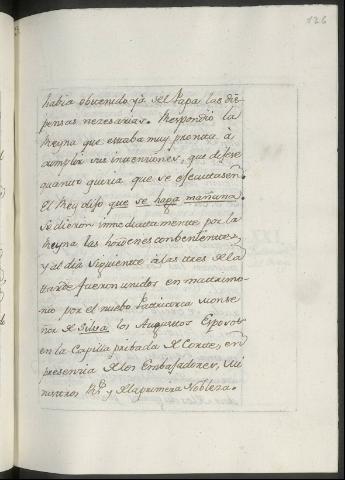 126
había obtenido yà del Papa las dis-
pensas nezesarias. Respondió la
Reyna que estaba muy pronta à
cumplir sus intenciones, que dijese
quanto queria que se ejecutasen.
El Rey dijo que se haga mañana.
Se dieron immediatamente por la
Reyna las hordenes combenientes,
y al dia siguiente à las tres de la
tarde fueron unidos en matrimo-
nio por el nuebo Patriarca Monse-
ñor de Silva los Augustos Esposos
en la Capilla pribada de Corte, en
presenzia de los Embajadores, Mi-
nistros y de la primera Nobleza.